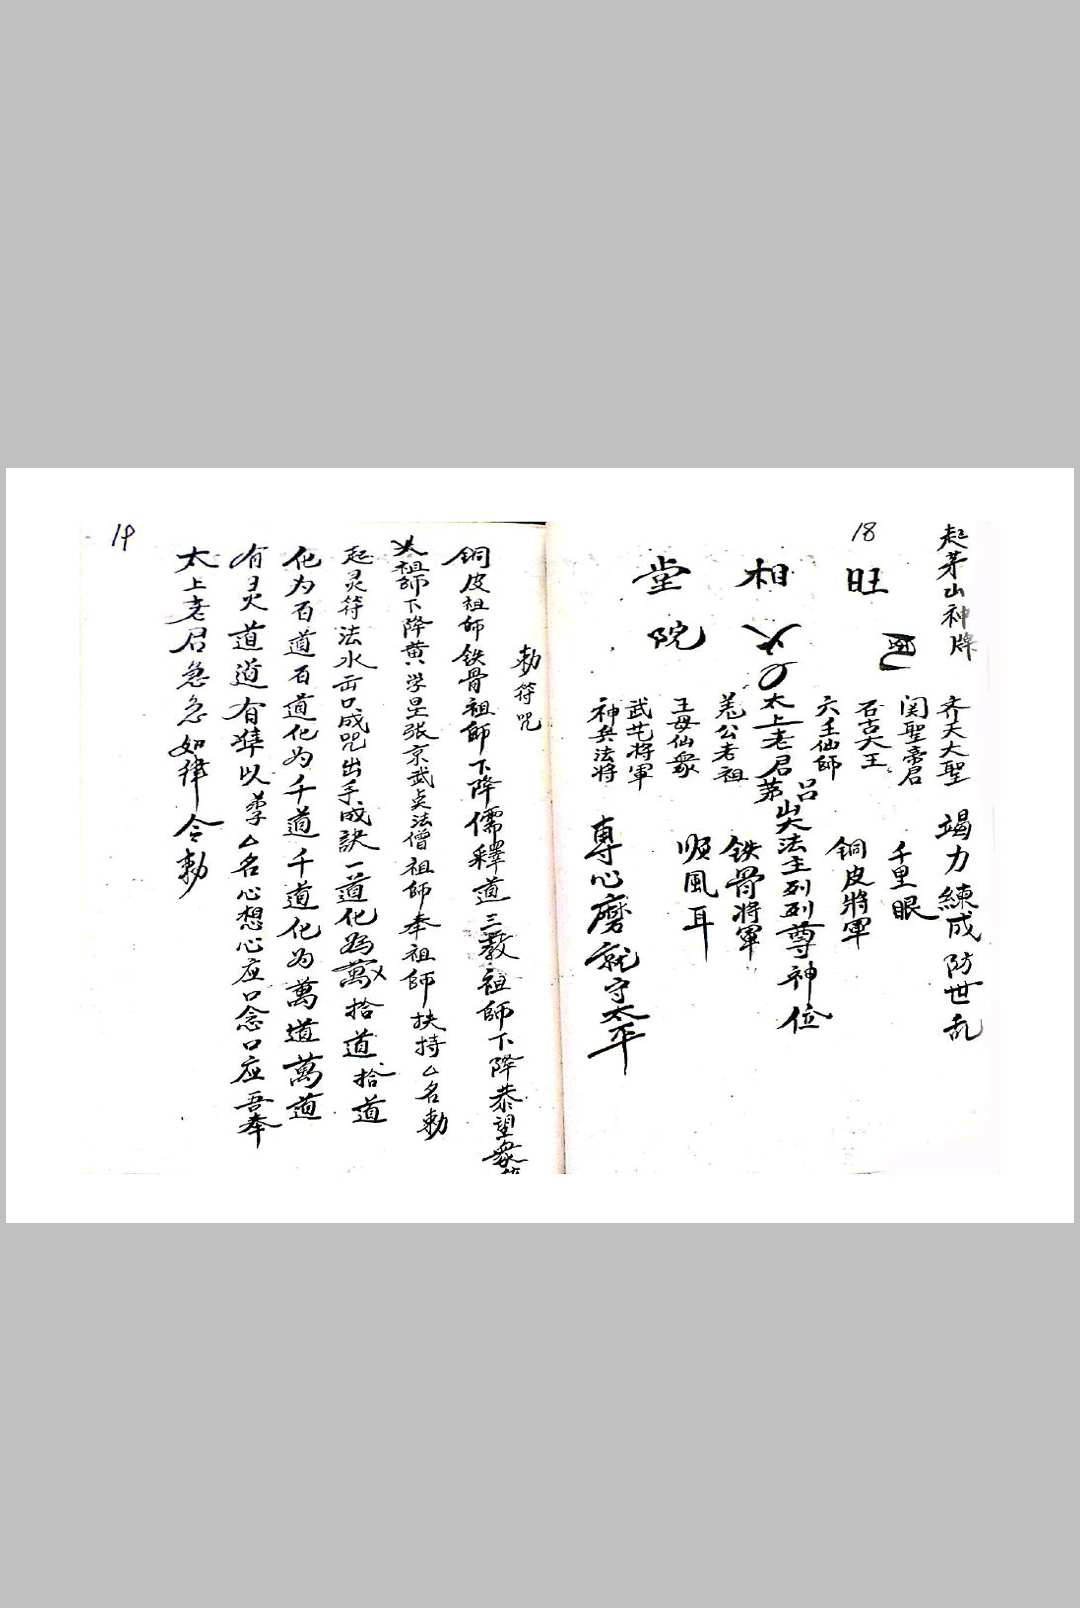 18
起茅山神牌
旺相堂
院
齐天大聖
関聖帝君
石古大王
六壬仙師
太上老君
茅山大法主列列尊神位
羗公老祖
王母仙衆
武 将軍
神兵法将
竭力練成防世乱
千里眼
銅皮將軍
鉄骨将軍
順風耳
專心磨就守太平
19
勅符咒
銅皮祖師鉄骨祖師下降儒釋道三教祖師下降恭望衆
祖師下降黄 学星张京武 法僧祖師奉祖師扶持厶名勅
起灵符法水 口成咒出手成訣一道化為萬拾道拾道
化为百道百道化为千道千道化为萬道萬道
有灵道道有準以 厶名心想心应口念口应吾奉
太上老君急急如律令勅